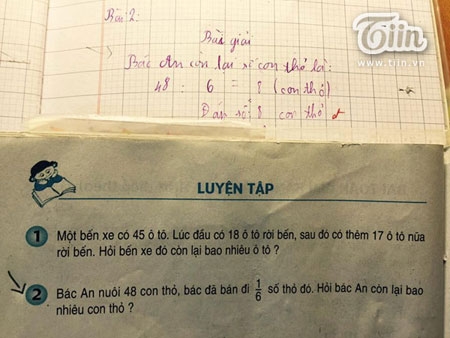 Bài 2:
Bài giải
Bác An còn lại số con thỏ là:
48 : 6 = 8 (con thỏ)
Đáp số: 8 con thỏ
Tiin
www.tiin.vn
LUYỆN TẬP
1 Một bến xe có 45 ô tô. Lúc đầu có 18 ô tô rời bến, sau đó có thêm 17 ô tô nữa
rời bến. Hỏi bến xe đó còn lại bao nhiêu ô tô ?
2 Bác An nuôi 48 con thỏ, bác đã bán đi 1/6 số thỏ đó. Hỏi bác An còn lại bao
nhiêu con thỏ ?